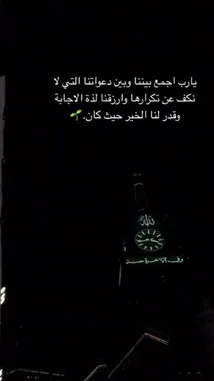 يارب اجمع بيننا وبين دعواتنا التي لا
نكف عن تكرارها وارزقنا لذة الاجابة
وقدر لنا الخير حيث كان.🌱
الله